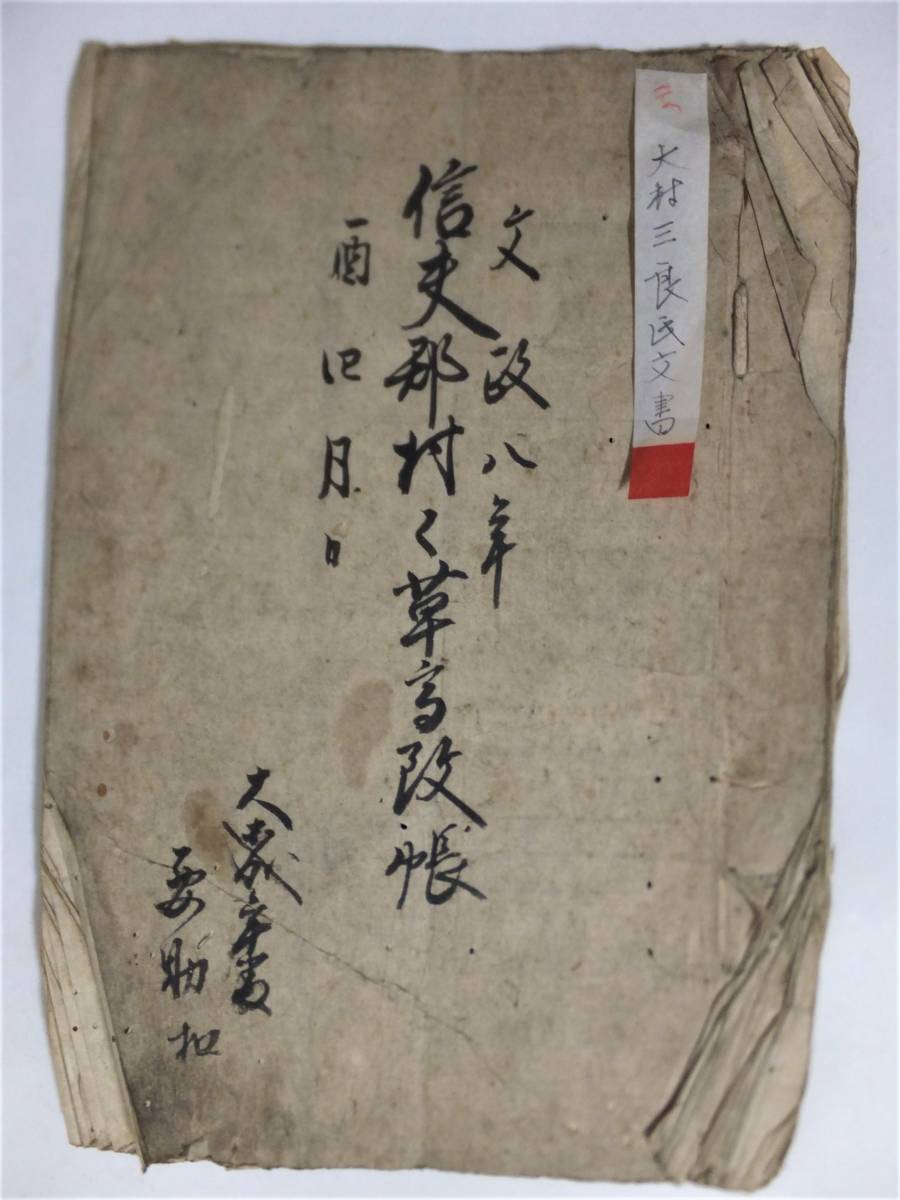 大村三良氏文書
文政八年
信夫郡村々草高改帳
酉四月日
大
要助扣